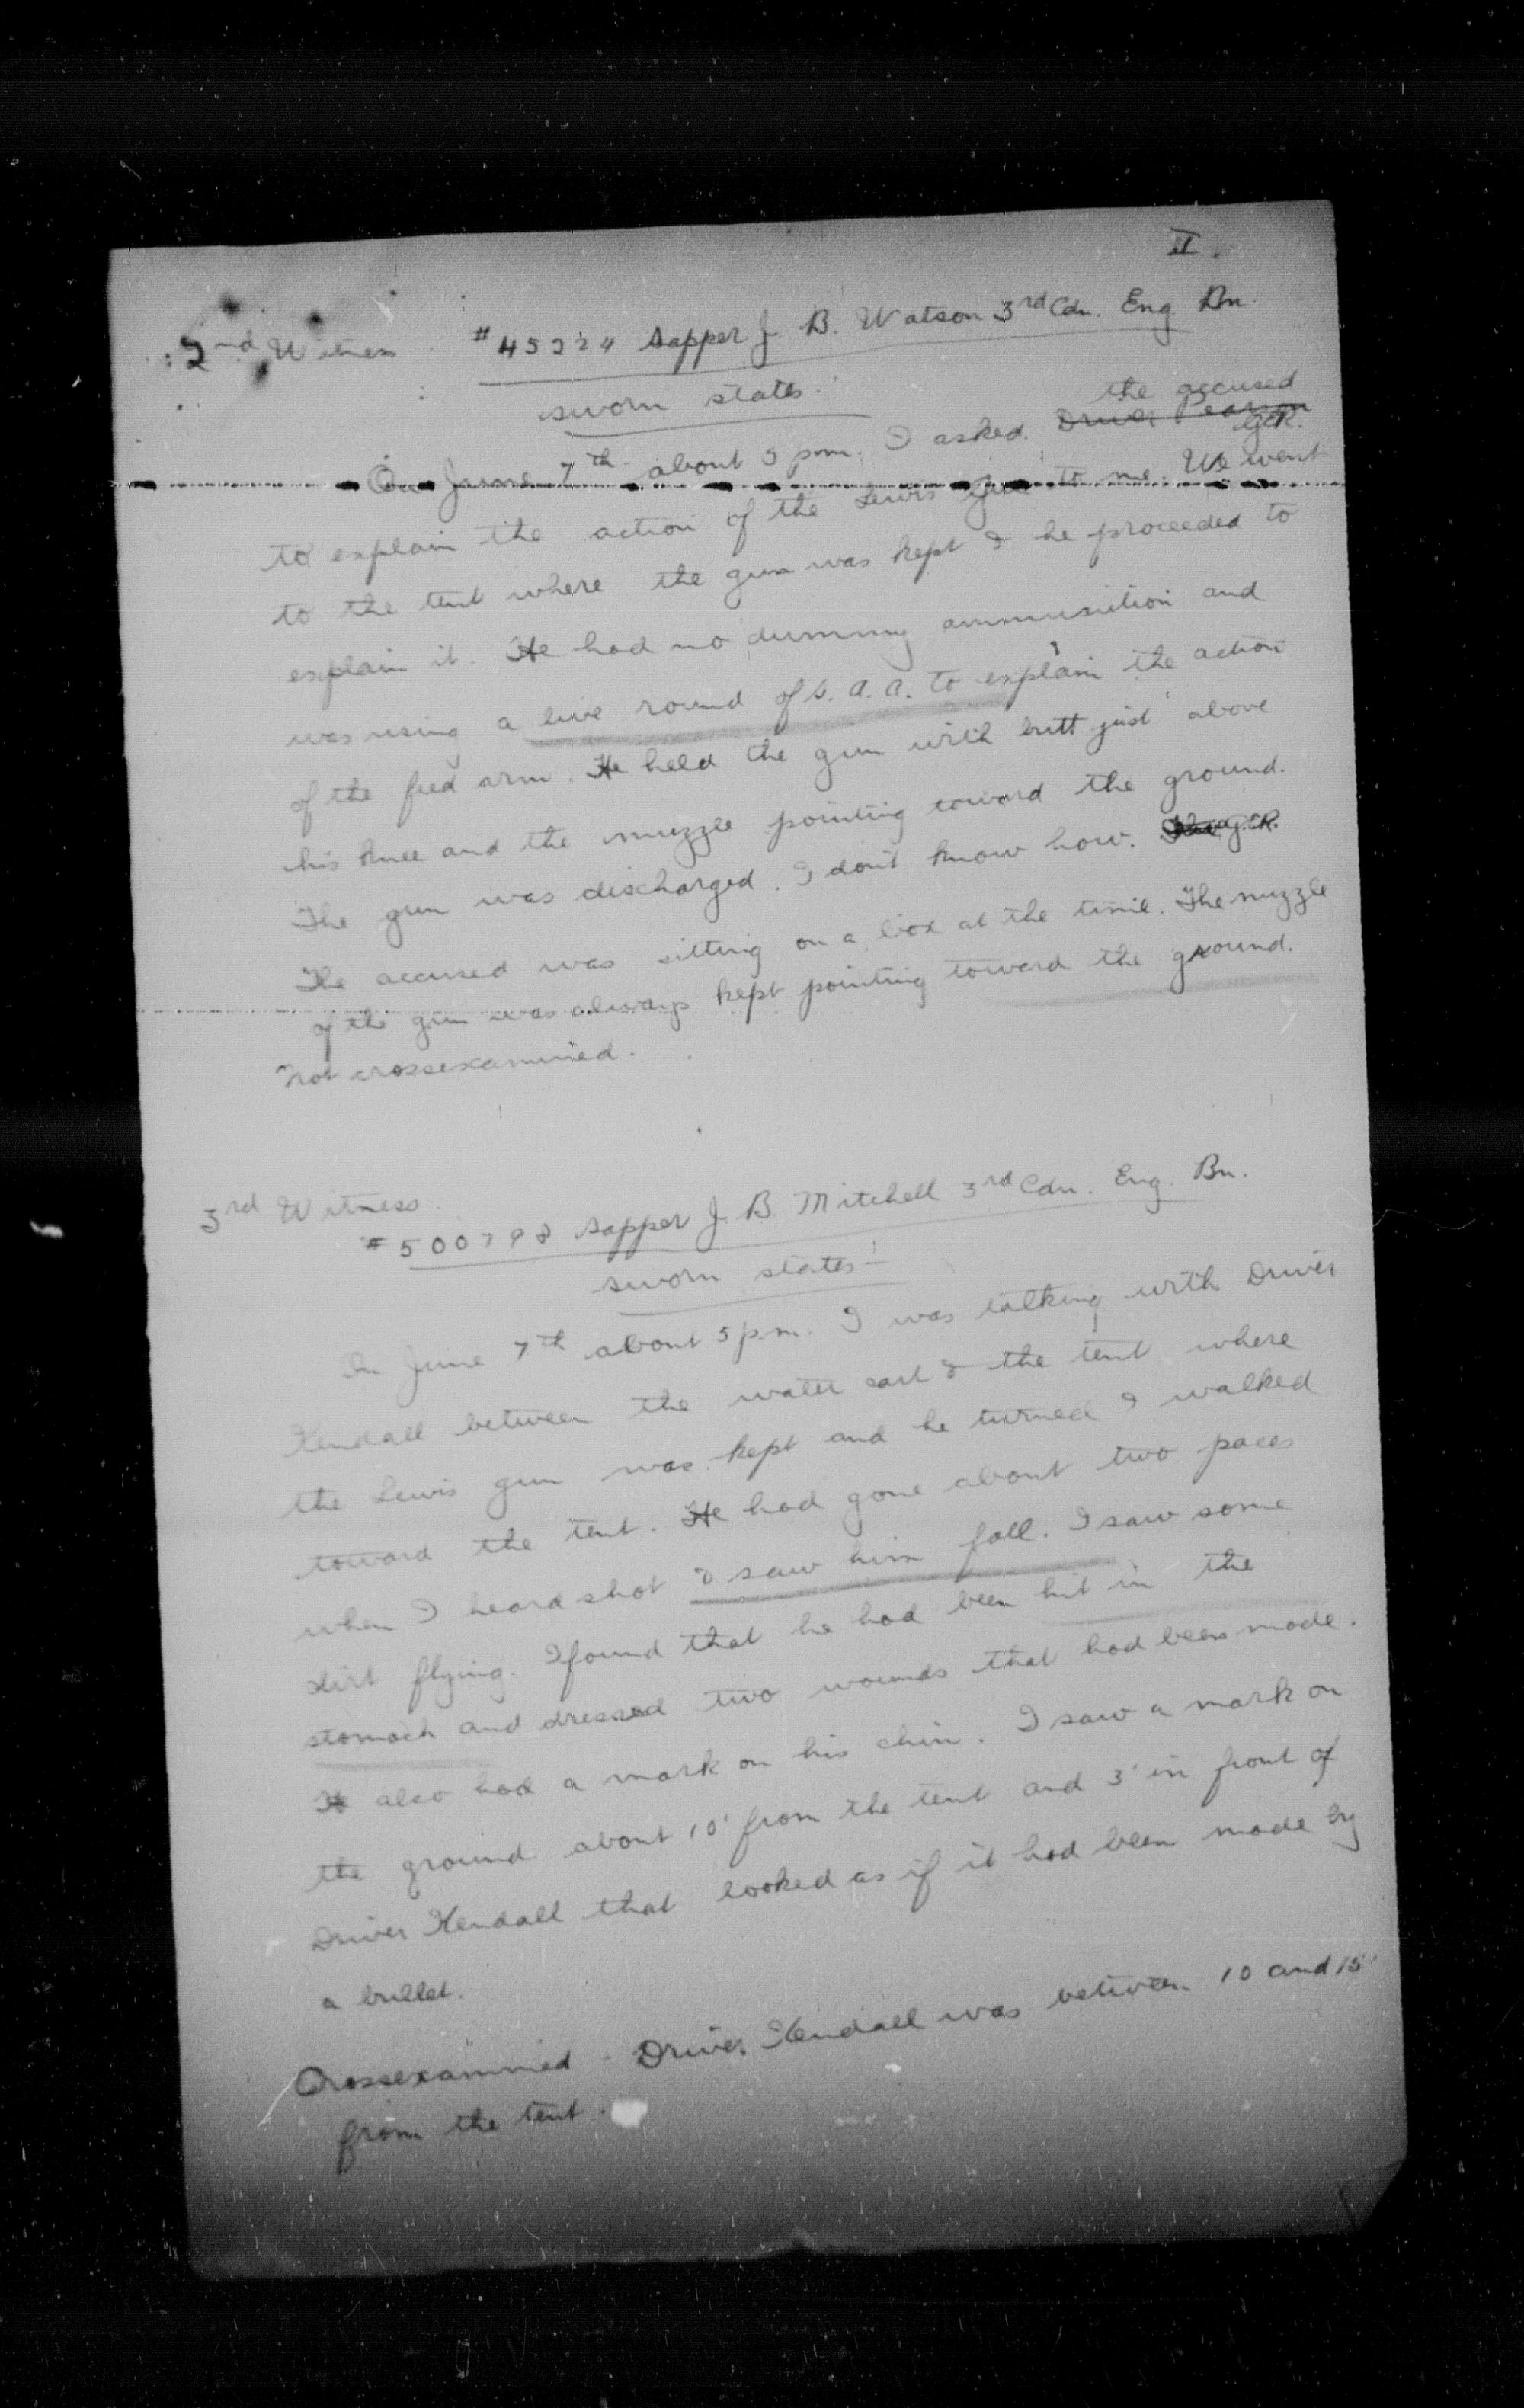 II.
2nd Witness #45224 Sapper J. B. Watson 3rd Cdn. Eng. Bn.
sworn states:
the accused
On June 7th about 5 pm. I asked Driver Pearson
G.R.
to explain the action of the Lewis gun to me. We went
to the tent where the gun was kept & he proceeded to
explain it. He had no dummy ammunition and
was using a live round of S. A. A. to explain the action
of the feed arm. He held the gun with butt just above
his knee and the muzzle pointing toward the ground.
The gun was discharged. I don't know how.
The accused was sitting on a box at the time. The muzzle
of the gun was always kept pointing toward the ground.
Not crossexamined.
3rd Witness.
#500798 Sapper J. B. Mitchell 3rd Cdn. Eng. Bn.
sworn states—
On June 7th about 5 p.m. I was talking with Driver
Kendall between the water cart & the tent where
the Lewis gun was kept and he turned & walked
toward the tent. He had gone about two paces
when I heard shot & saw him fall. I saw some
dirt flying. I found that he had been hit in the
stomach and dressed two wounds that had been made.
He also had a mark on his chin. I saw a mark on
the ground about 10' from the tent and 3' in front of
Driver Kendall that looked as if it had been made by
a bullet.
Crossexamined - Driver Kendall was between 10 and 15'
from the tent.